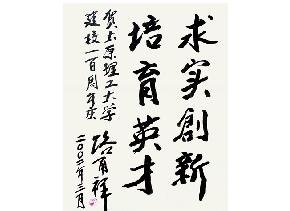 求实創新
培育英才
賀太原理工大学
建校一百周年庆
路甬祥
二〇〇二年三月